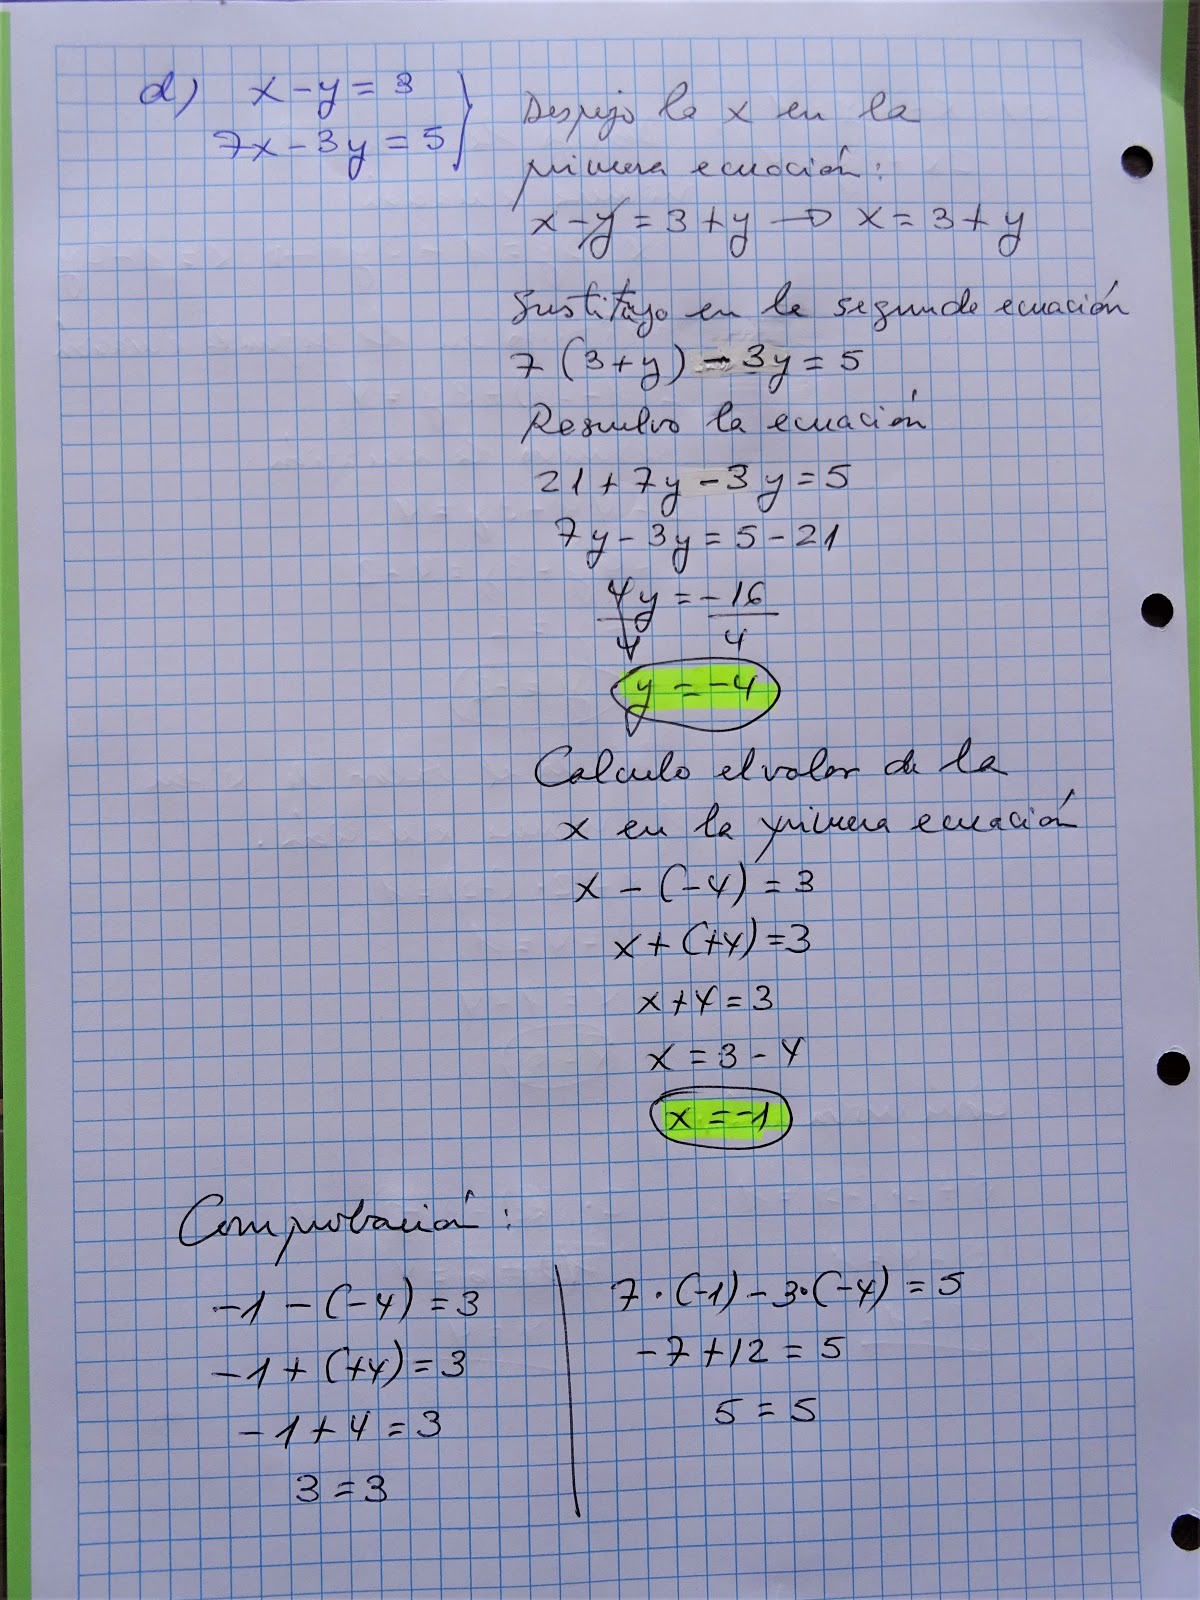 d) x - y = 3
7x - 3y = 5 }
Despejo la x en la
primera ecuación:
x - y = 3 + y → x = 3 + y
Sustituyo en la segunda ecuación
7 (3 + y) - 3y = 5
Resuelvo la ecuación
21 + 7y - 3y = 5
7y - 3y = 5 - 21
4y/4 = -16/4
y = -4
Calculo el valor de la
x en la primera ecuación
x - (-4) = 3
x + (+4) = 3
x + 4 = 3
x = 3 - 4
x = -1
Comprobación:
-1 - (-4) = 3
-1 + (+4) = 3
-1 + 4 = 3
3 = 3
7 · (-1) - 3 · (-4) = 5
-7 + 12 = 5
5 = 5